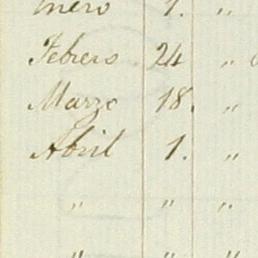 Enero 1. "
Febrero 24 "
Marzo 18. "
Abril 1. "
" " "
" " "